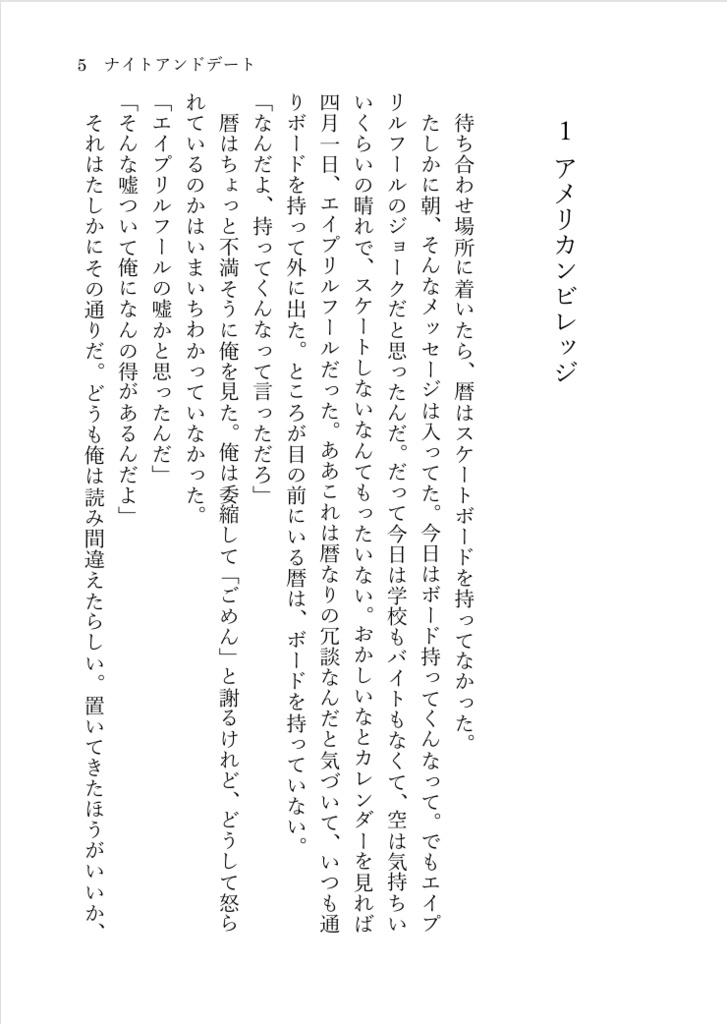 5 ナイトアンドデート
1 アメリカンビレッジ
待ち合わせ場所に着いたら、暦はスケートボードを持ってなかった。
たしかに朝、そんなメッセージは入ってた。今日はボード持ってくんなって。でもエイプ
リルフールのジョークだと思ったんだ。だって今日は学校もバイトもなくて、空は気持ちい
いくらいの晴れで、スケートしないなんてもったいない。おかしいなとカレンダーを見れば
四月一日、エイプリルフールだった。ああこれは暦なりの冗談なんだと気づいて、いつも通
りボードを持って外に出た。ところが目の前にいる暦は、ボードを持っていない。
「なんだよ、持ってくんなって言っただろ」
暦はちょっと不満そうに俺を見た。俺は委縮して「ごめん」と謝るけれど、どうして怒ら
れているのかはいまいちわかっていなかった。
「エイプリルフールの嘘かと思ったんだ」
「そんな嘘ついて俺になんの得があるんだよ」
それはたしかにその通りだ。どうも俺は読み間違えたらしい。置いてきたほうがいいか、